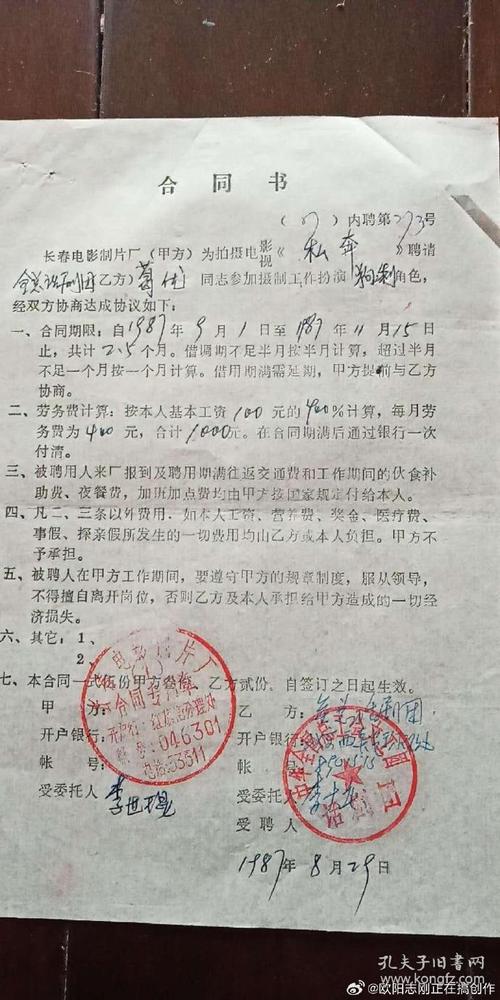 合同书
(87)内聘第273号
长春电影制片厂(甲方)为拍摄电影视《私奔》聘请
全总话剧团(乙方)葛优同志参加摄制工作扮演狗剩角色,
经双方协商达成协议如下:
一、合同期限:自1987年9月1日至1987年11月15日
止,共计2.5个月。借调期不足半月按半月计算,超过半月
不足一个月按一个月计算。借用期满需延期,甲方提前与乙方
协商。
二、劳务费计算:按本人基本工资100元的400%计算,每月劳
务费为400元,合计1000元。在合同期满后通过银行一次
付清。
三、被聘用人来厂报到及聘用期满往返交通费和工作期间的伙食补
助费、夜餐费,加班加点费均由甲方按国家规定付给本人。
四、凡二、三条以外费用.如本人工资、营养费、奖金、医疗费、
事假、探亲假所发生的一切费用均由乙方或本人负担。甲方不
予承担。
五、被聘人在甲方工作期间,要遵守甲方的规章制度,服从领导,
不得擅自离开岗位,否则乙方及本人承担给甲方造成的一切经
济损失。
六、其它:1、
2、
七、本合同一式伍份甲方叁份,乙方贰份,自签订之日起生效。
甲方:
开户银行:
帐号:
受委托人 李世
乙方:
开户银行:
帐号:
受委托人
受聘人
电影制片厂
合同专用章
046301
电话53311
1987年8月29日
孔夫子旧书网
kongfz.com
@欧阳志刚正在搞创作